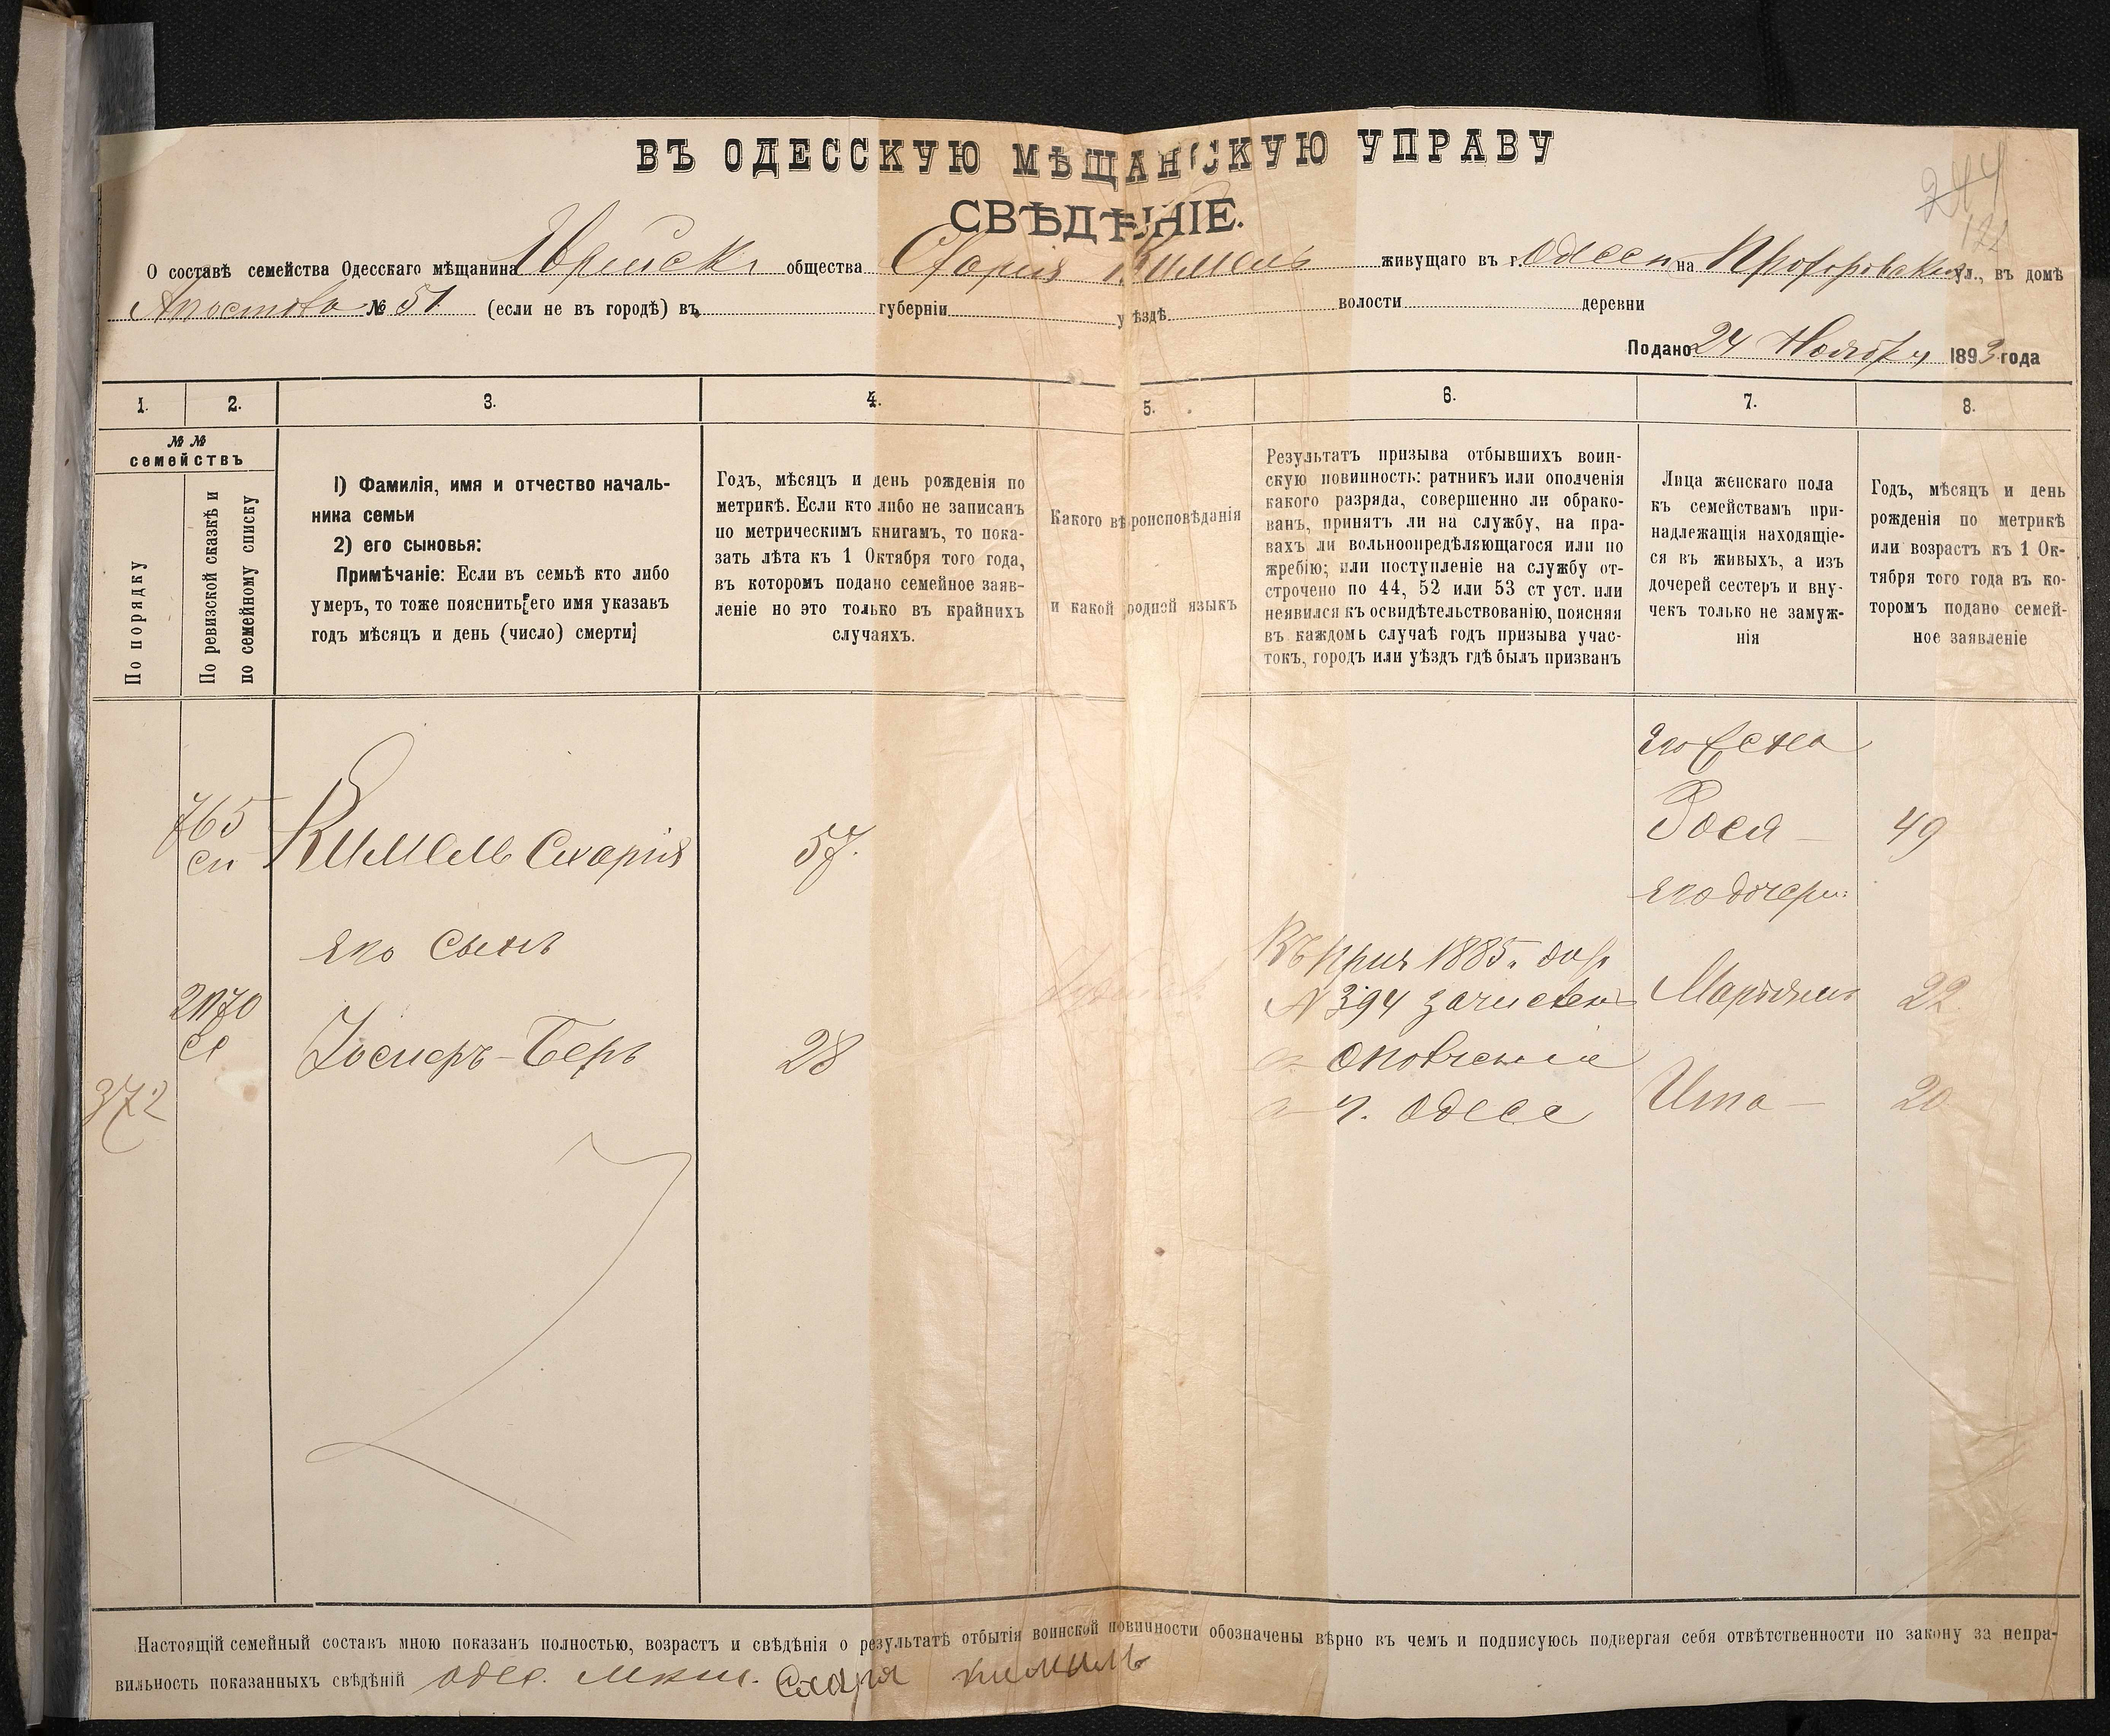 ВЪ ОДЕССКУЮ МѢЩАНСКУЮ УПРАВУ
СВѢДѢНІЕ.
О составѣ семейства Одесскаго мѣщанина общества Схарія Кимель живущаго въ г. Одессѣ на Прохоровской ул., въ домѣ
№ 51 (если не въ городѣ) въ губерніи уѣздѣ волости деревни
Подано 24 Ноября 1893 года
1. 2. 3. 4. 5. 6. 7. 8.
№ №
семействъ
По порядку
По ревизской сказкѣ и
по семейному списку
1) Фамилія, имя и отчество началь-
ника семьи
2) его сыновья:
Примѣчаніе: Если въ семьѣ кто либо
умеръ, то тоже пояснить его имя указавъ
годъ мѣсяцъ и день (число) смерти
Годъ, мѣсяцъ и день рожденія по
метрикѣ. Если кто либо не записанъ
по метрическимъ книгамъ, то пока-
зать лѣта къ 1 Октября того года,
въ которомъ подано семейное заяв-
леніе но это только въ крайнихъ
случаяхъ.
Какого вѣроисповѣданія
и какой родной языкъ
Результатъ призыва отбывшихъ воин-
скую повинность: ратникъ или ополченія
какого разряда, совершенно ли обрако-
ванъ, принятъ ли на службу, на пра-
вахъ ли вольноопредѣляющагося или по
жребію; или поступленіе на службу от-
строчено по 44, 52 или 53 ст уст. или
неявился къ освидѣтельствованію, поясняя
въ каждомъ случаѣ годъ призыва учас-
токъ, городъ или уѣздъ гдѣ былъ призванъ
Лица женскаго пола
къ семействамъ при-
надлежащія находящіе-
ся въ живыхъ, а изъ
дочерей сестеръ и вну-
чекъ только не замуж-
нія
Годъ, мѣсяцъ и день
рожденія по метрикѣ
или возрастъ къ 1 Ок-
тября того года въ ко-
торомъ подано семей-
ное заявленіе
765
сп
Кимель Схарія
57.
его жена
Рося
49
его дочери:
его сынъ
2170
Іосифъ-Беръ
28
372
Въ 1885
№ 394 зачисленъ
въ ополченіе
въ г. Одесе
Марьямъ
22
Ита
20
Настоящій семейный составъ мною показанъ полностью, возрастъ и свѣдѣнія о результатѣ отбытія воинской повинности обозначены вѣрно въ чемъ и подписуюсь подвергая себя отвѣтственности по закону за непра-
вильность показанныхъ свѣдѣній Одес. Схаря Кимель